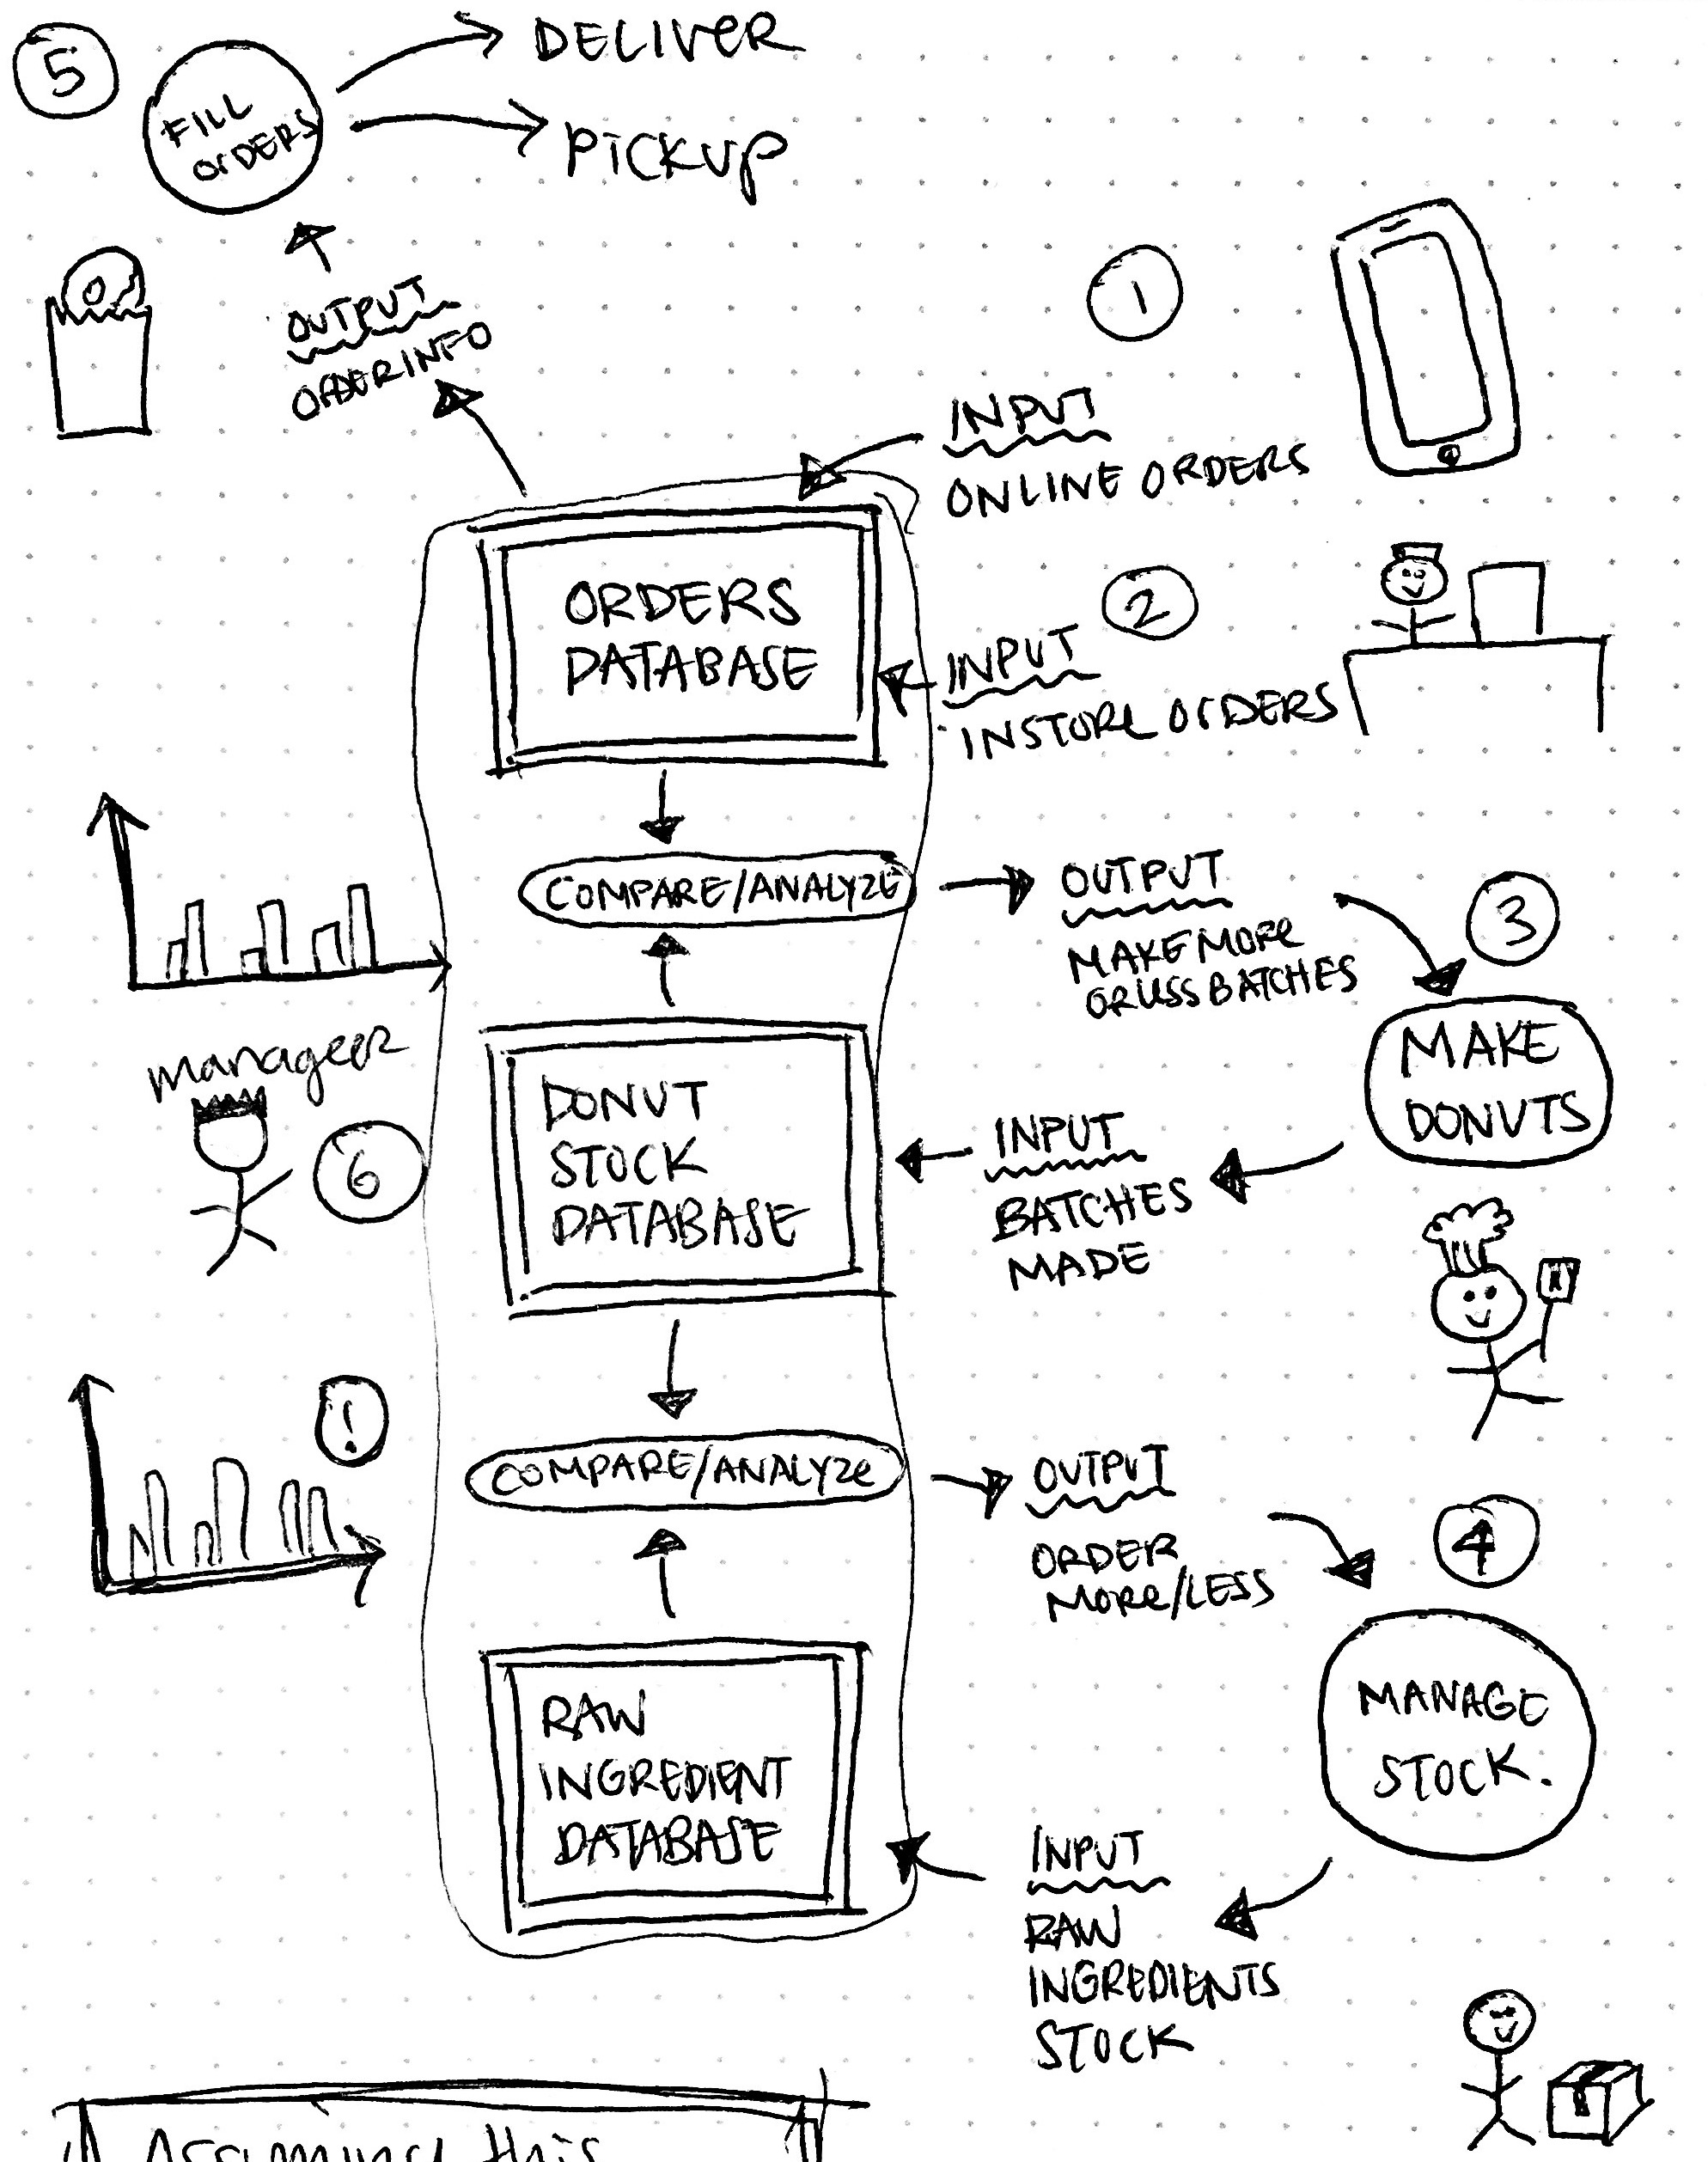 5
FILL
OrDERS
DELIVER
PICKUP
OUTPUT
ORDER INFO
1
INPUT
ONLINE ORDERS
2
INPUT
INSTORE OrDERS
ORDERS
DATABASE
COMPARE/ANALYZE
OUTPUT
MAKE MORE
OR LESS BATCHES
3
MAKE
DONUTS
manager
6
DONUT
STOCK
DATABASE
INPUT
BATCHES
MADE
!
COMPARE/ANALYZE
OUTPUT
ORDER
MORE/LESS
4
MANAGE
STOCK.
RAW
INGREDIENT
DATABASE
INPUT
RAW
INGREDIENTS
STOCK
Assuming this